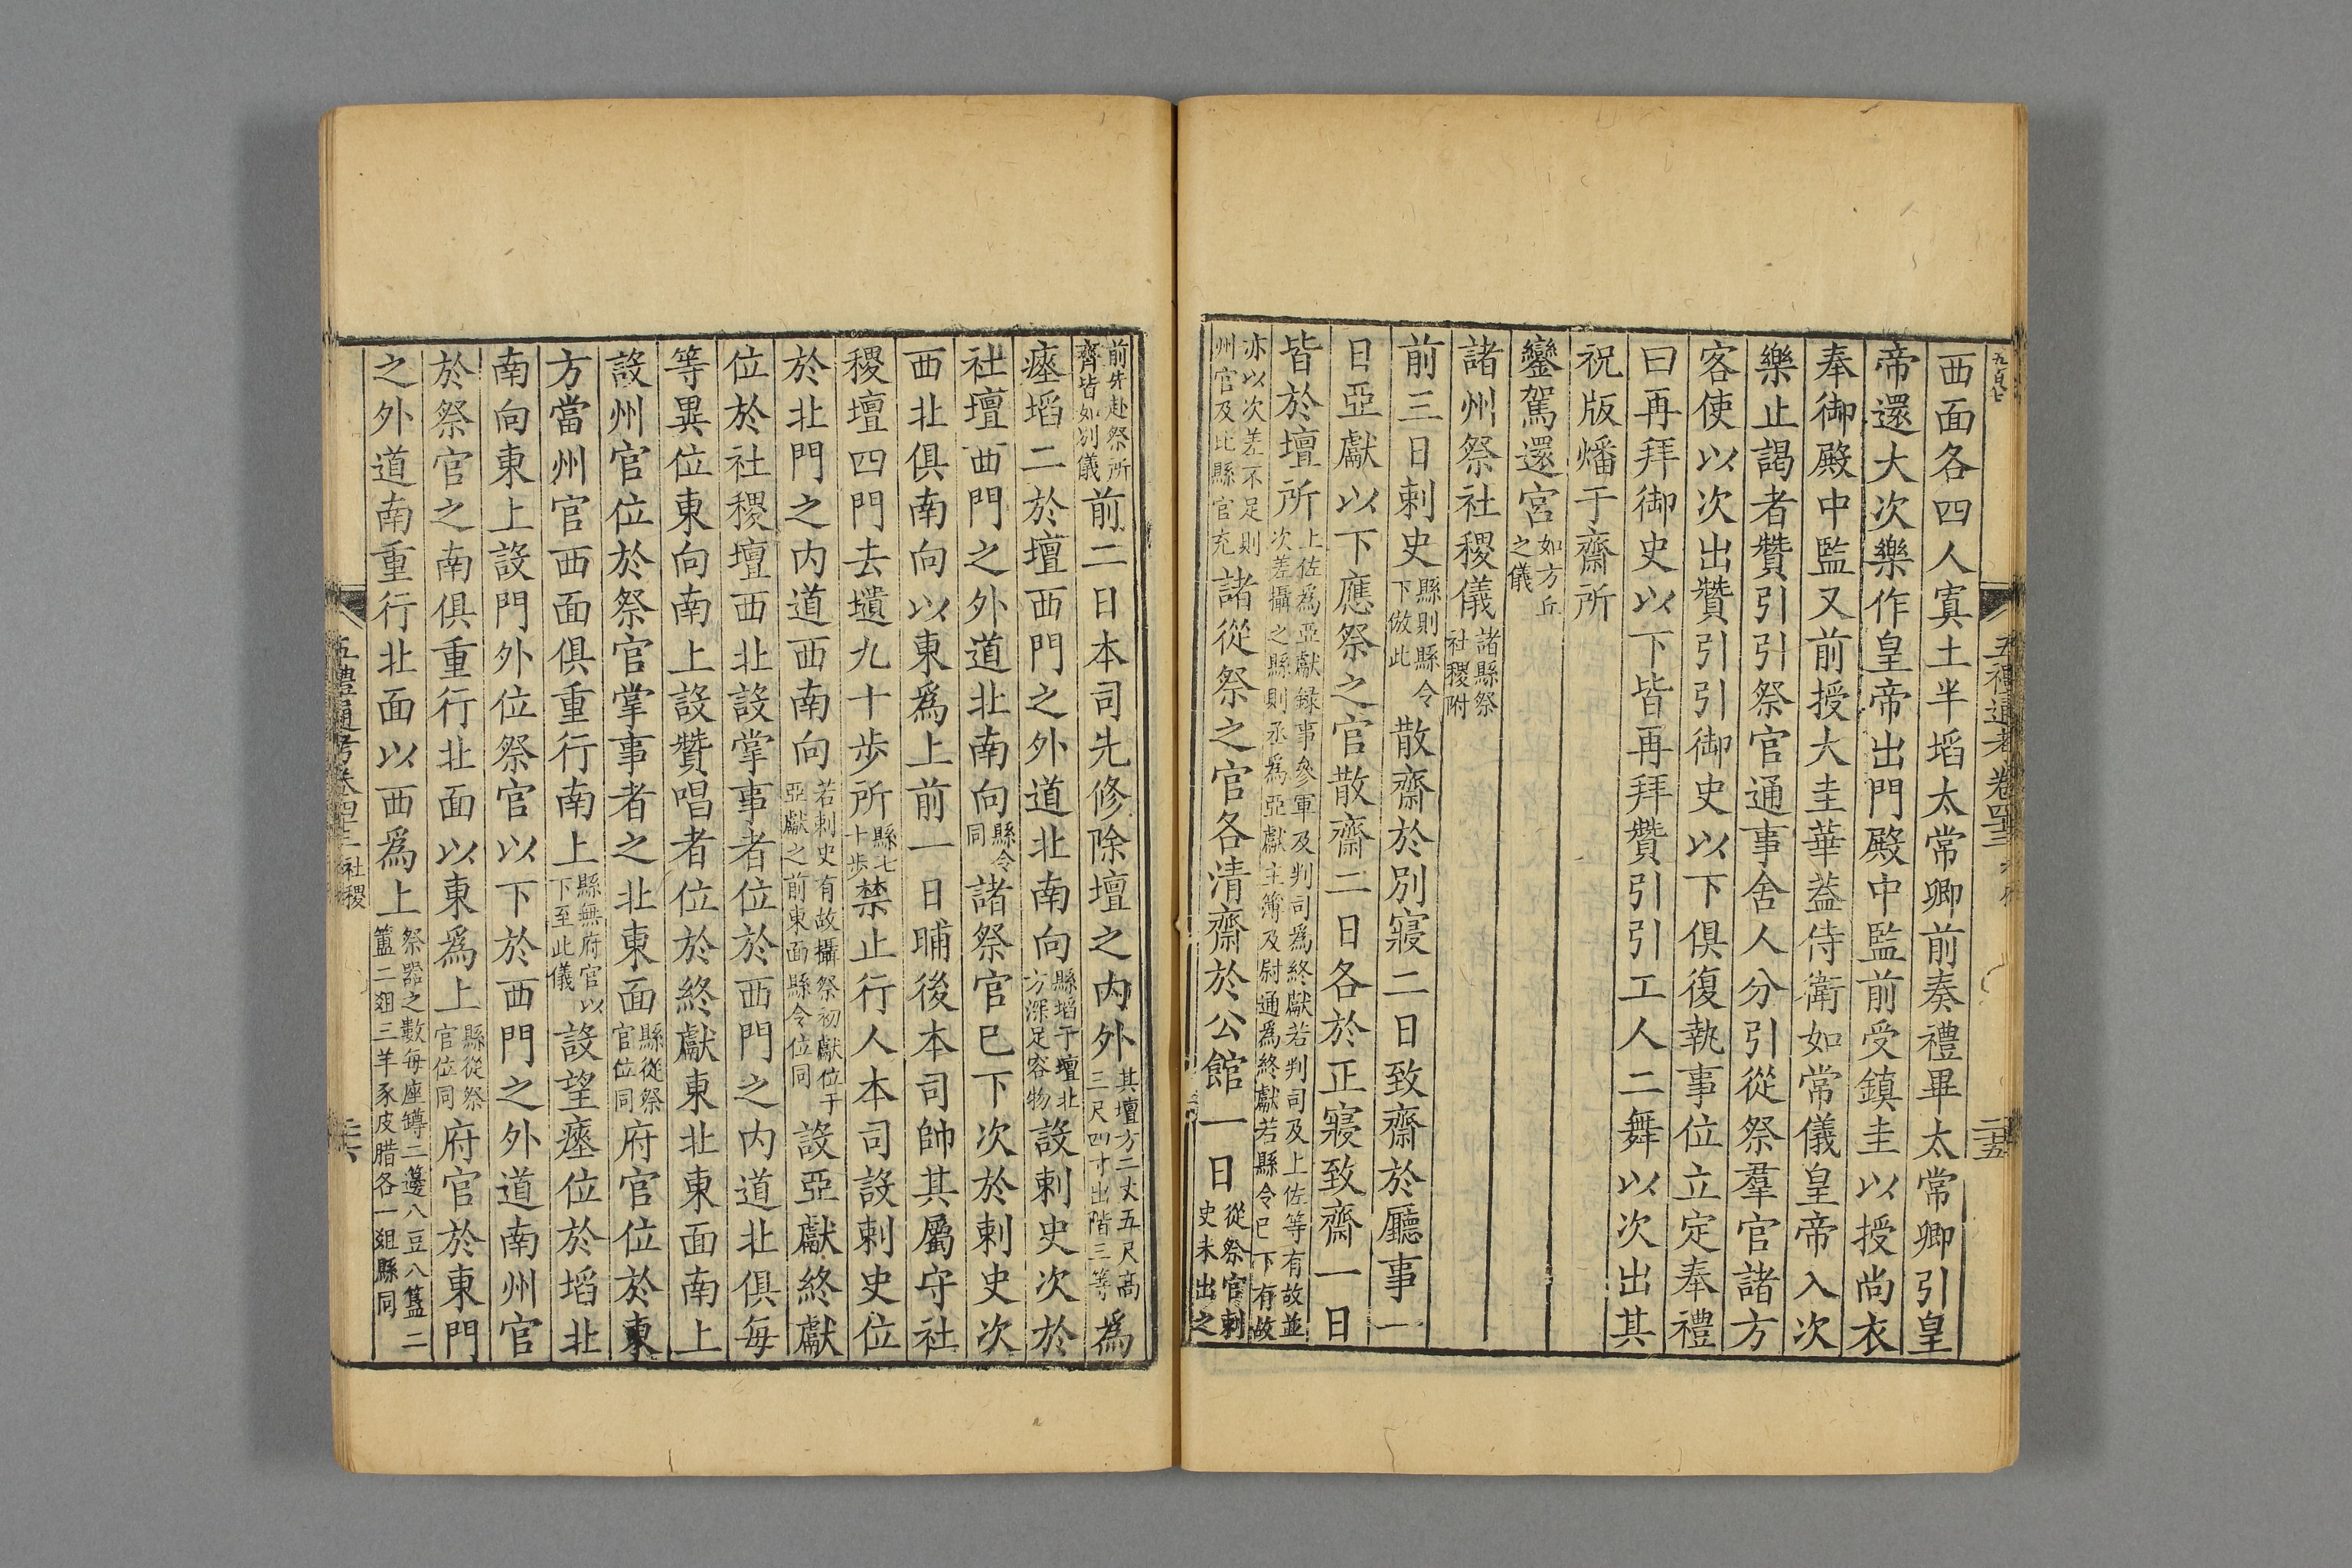 西面各四人寘土半埳太常卿前奏禮畢太常卿引皇
帝還大次樂作皇帝出門殿中監前受鎮圭以授尚衣
奉御殿中監又前授大圭華葢侍衛如常儀皇帝入次
樂止謁者贊引引祭官通事舍人分引從祭羣官諸方
客使以次出贊引引御史以下俱復執事位立定奉禮
曰再拜御史以下皆再拜贊引引工人二舞以次出其
祝版燔于齋所
鑾駕還宮如方丘之儀
諸州祭社稷儀諸縣祭社稷附
前三日刺史縣則縣令下倣此散齋於別寢二日致齋於廳事一
日亞獻以下應祭之官散齋二日各於正寢致齋一日
皆於壇所上佐為亞獻録事參軍及判司為終獻若判司及上佐等有故並次差攝之縣則丞為亞獻主簿及尉通為終獻若縣令已下有故
亦以次差不足則州官及比縣官充諸從祭之官各清齋於公館一日從祭官刺史未出之
前先赴祭所齋皆如別儀前二日本司先修除壇之内外其壇方二丈五尺高三尺四寸出階三等為
瘞埳二於壇西門之外道北南向縣埳于壇北方深足容物設刺史次於
社壇西門之外道北南向縣令同諸祭官已下次於刺史次
西北俱南向以東為上前一日晡後本司帥其屬守社
稷壇四門去壝九十歩所縣七十歩禁止行人本司設刺史位
於北門之内道西南向若刺史有故攝祭初獻位于亞獻之前東面縣令位同設亞獻終獻
位於社稷壇西北設掌事者位於西門之内道北俱每
等異位東向南上設贊唱者位於終獻東北東面南上
設州官位於祭官掌事者之北東面縣從祭官位同府官位於東
方當州官西面俱重行南上縣無府官以下至此儀設望瘞位於埳北
南向東上設門外位祭官以下於西門之外道南州官
於祭官之南俱重行北面以東為上縣從祭官位同府官於東門
之外道南重行北面以西為上祭器之數每座罇二籩八豆八簋二簠二俎三羊豕皮腊各一俎縣同
五禮通考卷四十三 社稷